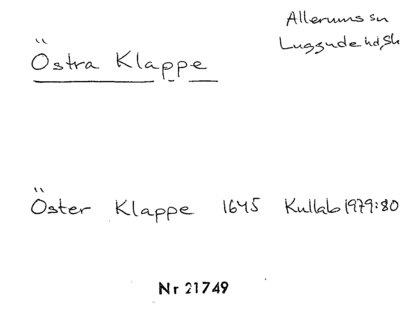 Allerums sn
Östra Klappe
Luggude hd, Sk
Öster Klappe 1645 Kullab 1979:80
Nr 21749